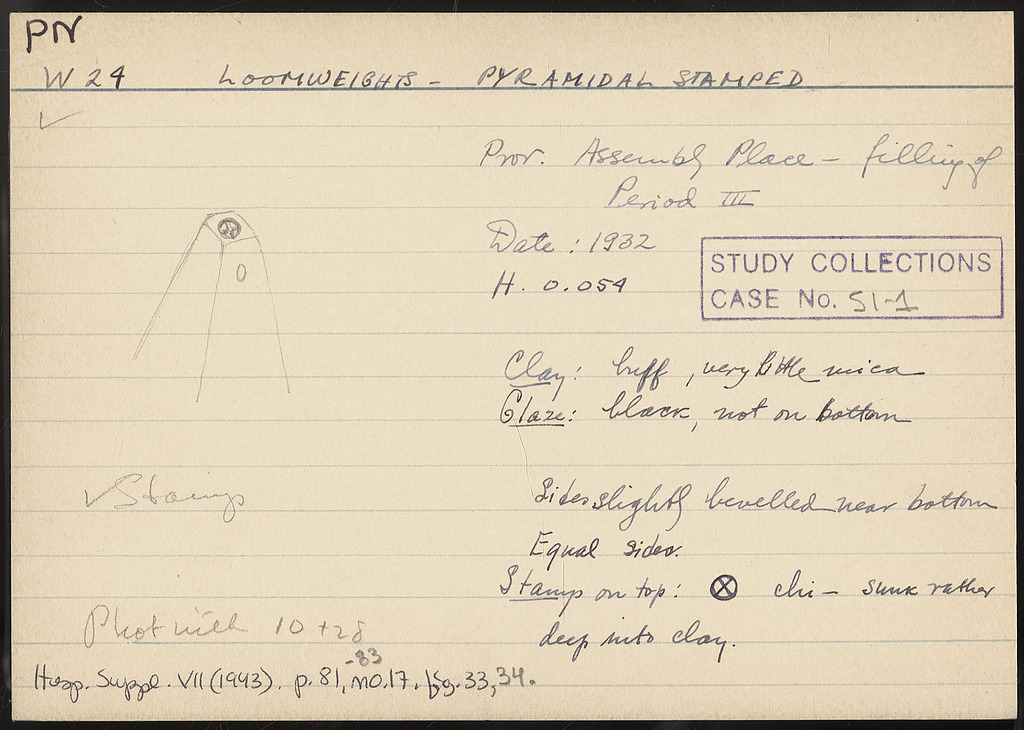 PN
W 24 LOOMWEIGHTS - PYRAMIDAL STAMPED
✓
Prov. Assembly Place - filling of
Period III
Date : 1932
H. 0.054
STUDY COLLECTIONS
CASE No. SI-1
Clay: buff, very little mica
Glaze: black, not on bottom
✓ Stamp
Sides slightly bevelled near bottom
Equal sides.
Stamp on top: ⊗ chi - sunk rather
deep into clay.
Phot with 10 + 28
Hesp. Suppl. VII (1943). p. 81,-83 no. 17. fig. 33, 34.